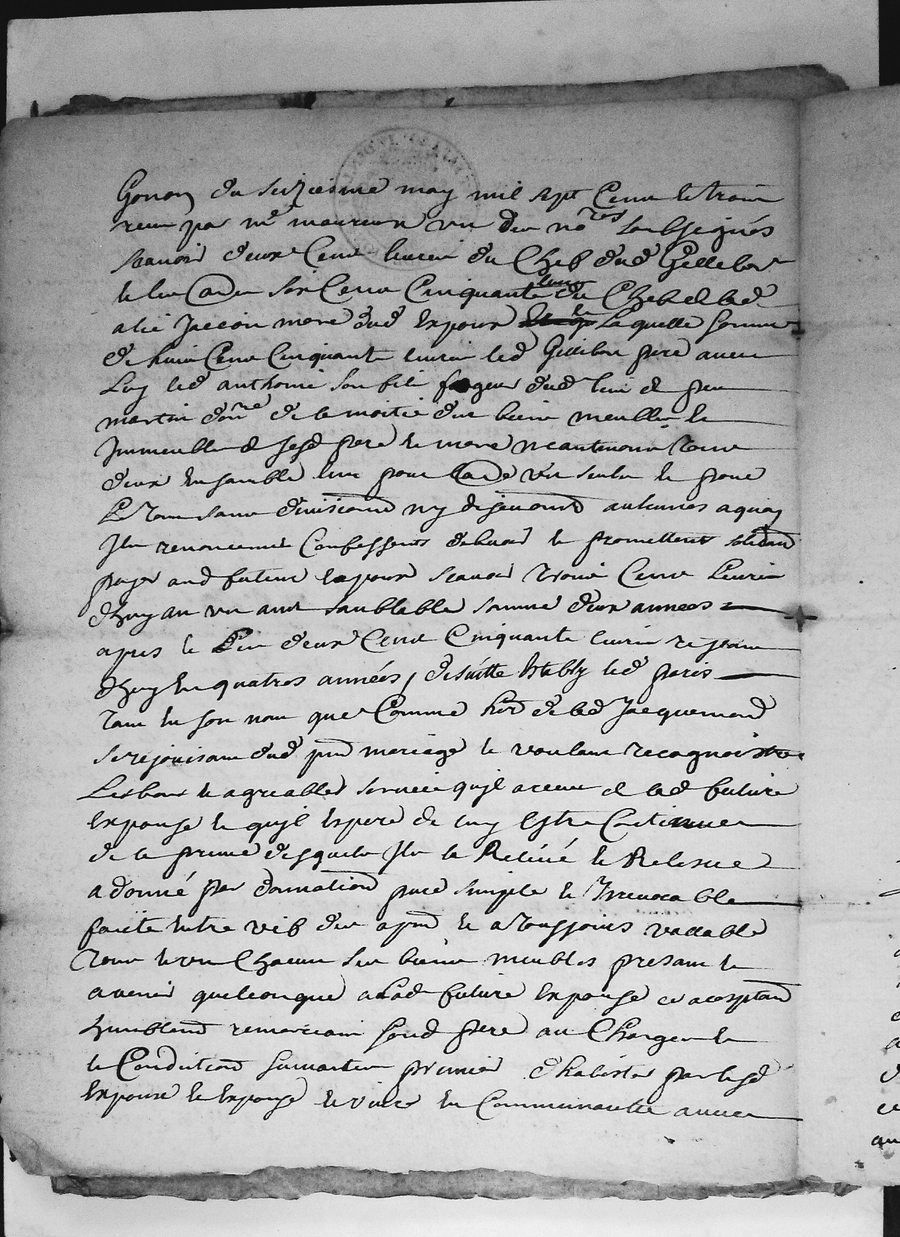 Gonon du seiziesme may mil sept Cent et trois
receu par me maureux un des nores soubsignés
scauoir deux Cent liures du Chef dud Gillebon
et les Cent Cinquante liures du Chef de lad
alis Jaccon mere dud Espoux laquelle somme
de huit Cent Cinquant liures led Gillibon pere auec
Luy led anthoine son fils forgeur dud lieu de
martin de la moitie des biens meubles et
Immeubles de sesd pere et mere neantmoins tous
deux Ensemble un pour un seulx et pour
Le tout sans diuision ny d aulcuns aquoy
Ils renoncent Confessent debuoir et promettent solidairt
payer aud futeur Espoux scauoir trois Cent Liures
dhuy an un ant samblable somme deux annees
apres et Les deux Cent Cinquante liures restans
dhuy En quatres années, desuitte Estably led paris
tant En son nom que Comme hert de lad Jacquemond
se rejouissant dud pnt mariage et voulant recognoistre
Les bons et agreables seruices quil a receu de lad future
Espouse et quil Espere de luy Estre Continuer
de la preuue desquels Il la Releué et Releue
a donné par donnation pure simple et Irreuocable
faicte Entre vifs des apnt et a tousjours vallable
tous et un Chacun ses biens meubles presant et
auenir quelconque a lad future Espouse ce aceptant
humblemt remerciant sond pere au Charges et
et Conditions suiuantes premier dhabister par lesd
Espoux et Espouse et viure En Communaulte auec